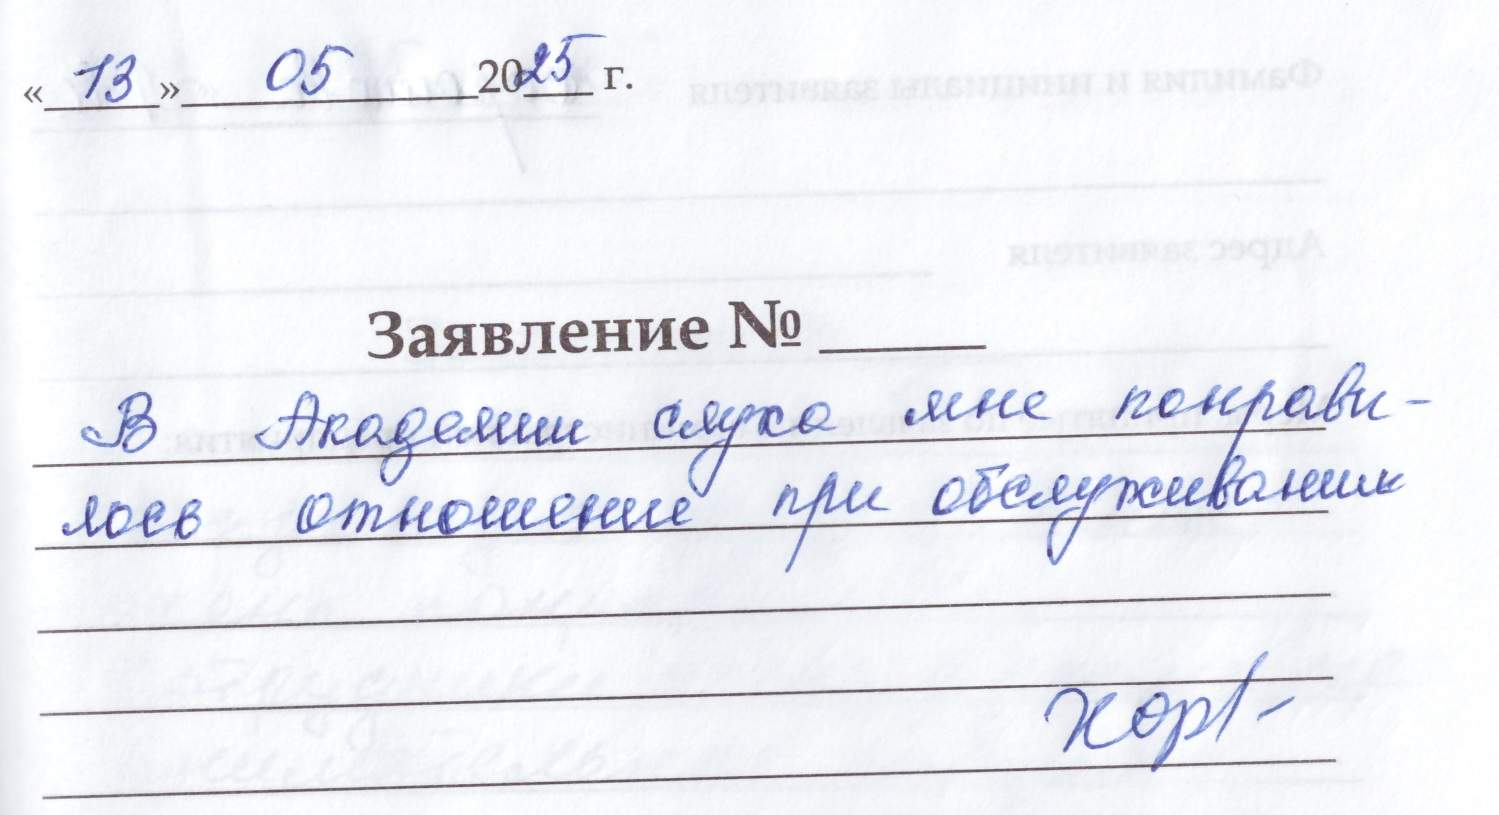 «13» 05 2025 г.
Заявление № ______
В Академии слуха мне понрави-
лось отношение при обслуживании